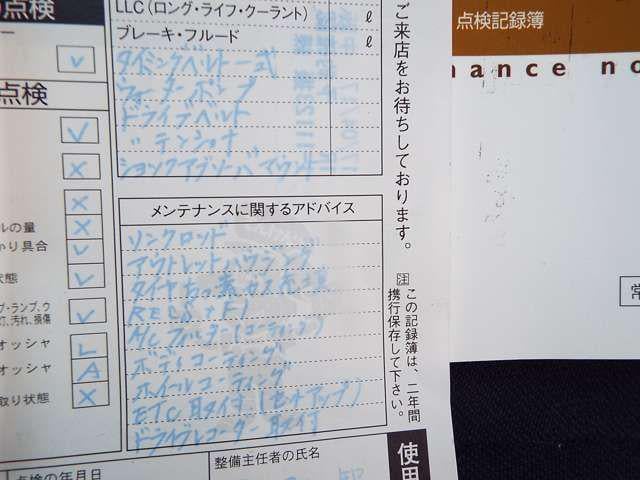 点検
LLC(ロング・ライフ・クーラント) ℓ
ブレーキ・フルード ℓ
タイミングベルト一式
ウォーターポンプ
ドライブベルト
〃 テンショナ
ショックアブソーバマウント
点検
ルの量
かり具合
状態
プ・ランプ、ウ
灯、汚れ、損傷
オッシャ
オッシャ
取り状態
メンテナンスに関するアドバイス
リンクロッド
アウトレットハウジング
タイヤちっ素ガス充填
RECS + F1
A/C フィルター(コーティング)
ボディコーティング
ホイールコーティング
ETC 取付 (セットアップ)
ドライブレコーダー 取付
点検の年月日
整備主任者の氏名
ご来店をお待ちしております。
注 この記録簿は、二年間
携行保存して下さい。
使用
点検記録簿
nance no
常